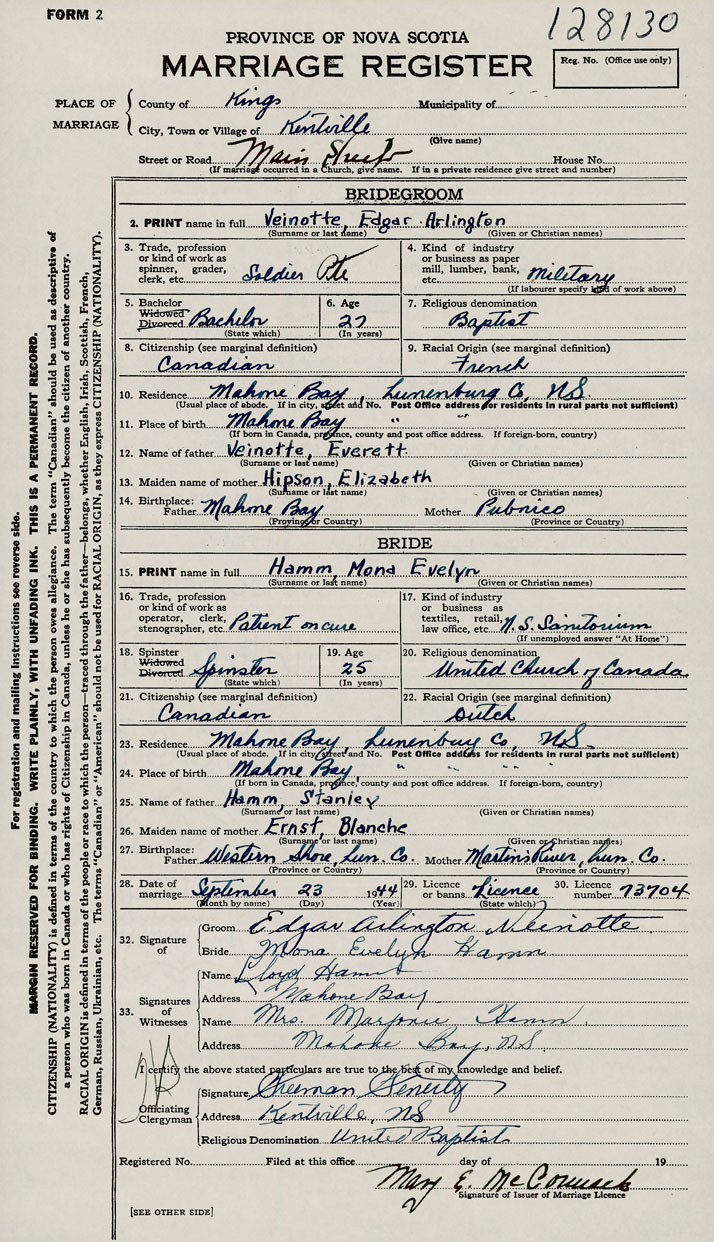 FORM 2
128130
PROVINCE OF NOVA SCOTIA
MARRIAGE REGISTER
Reg. No. (Office use only)
PLACE OF MARRIAGE
County of Kings Municipality of
City, Town or Village of Kentville
(Give name)
Street or Road Main Street House No.
(If marriage occurred in a Church, give name. If in a private residence give street and number)
BRIDEGROOM
2. PRINT name in full Veinotte, Edgar Arlington
(Surname or last name) (Given or Christian names)
3. Trade, profession or kind of work as spinner, grader, clerk, etc. Soldier Pte
4. Kind of industry or business as paper mill, lumber, bank, etc. Military
(If labourer specify kind of work above)
5. Bachelor Widowed Divorced Bachelor
(State which)
6. Age 27
(In years)
7. Religious denomination
Baptist
8. Citizenship (see marginal definition)
Canadian
9. Racial Origin (see marginal definition)
French
10. Residence Mahone Bay, Lunenburg Co, N.S.
(Usual place of abode. If in city, street and No. Post Office address for residents in rural parts not sufficient)
11. Place of birth Mahone Bay " "
(If born in Canada, province, county and post office address. If foreign-born, country)
12. Name of father Veinotte, Everett
(Surname or last name) (Given or Christian names)
13. Maiden name of mother Hipson, Elizabeth
(Surname or last name) (Given or Christian names)
14. Birthplace: Father Mahone Bay Mother Pubnico
(Province or Country) (Province or Country)
BRIDE
15. PRINT name in full Hamm, Mona Evelyn
(Surname or last name) (Given or Christian names)
16. Trade, profession or kind of work as operator, clerk, stenographer, etc. Patient on cure
17. Kind of industry or business as textiles, retail, law office, etc. N.S. Sanitorium
(If unemployed answer "At Home")
18. Spinster Widowed Divorced Spinster
(State which)
19. Age 25
(In years)
20. Religious denomination
United Church of Canada
21. Citizenship (see marginal definition)
Canadian
22. Racial Origin (see marginal definition)
Dutch
23. Residence Mahone Bay, Lunenburg Co, N.S.
(Usual place of abode. If in city, street and No. Post Office address for residents in rural parts not sufficient)
24. Place of birth Mahone Bay, " " " "
(If born in Canada, province, county and post office address. If foreign-born, country)
25. Name of father Hamm, Stanley
(Surname or last name) (Given or Christian names)
26. Maiden name of mother Ernst, Blanche
(Surname or last name) (Given or Christian names)
27. Birthplace: Father Western Shore, Lun. Co. Mother Martin's River, Lun. Co.
(Province or Country) (Province or Country)
28. Date of marriage September 23 1944
(Month by name) (Day) (Year)
29. Licence or banns. Licence
(State which)
30. Licence number 73704
32. Signature of
Groom Edgar Arlington Veinotte
Bride Mona Evelyn Hamm
33. Signatures of Witnesses
Name Lloyd Hamm
Address Mahone Bay
Name Mrs. Marjorie Hamm
Address Mahone Bay, N.S.
I certify the above stated particulars are true to the best of my knowledge and belief.
Officiating Clergyman
Signature Freeman Fenerty
Address Kentville, NS
Religious Denomination United Baptist
Registered No. Filed at this office day of 19
Mary E. McCormack
Signature of Issuer of Marriage Licence
[SEE OTHER SIDE]
For registration and mailing instructions see reverse side.
MARGIN RESERVED FOR BINDING. WRITE PLAINLY, WITH UNFADING INK. THIS IS A PERMANENT RECORD.
CITIZENSHIP (NATIONALITY) is defined in terms of the country to which the person owes allegiance. The term "Canadian" should be used as descriptive of
a person who was born in Canada or who has rights of Citizenship in Canada, unless he or she has subsequently become the citizen of another country.
RACIAL ORIGIN is defined in terms of the people or race to which the person—traced through the father—belongs, whether English, Irish, Scottish, French,
German, Russian, Ukrainian, etc. The terms "Canadian" or "American" should not be used for RACIAL ORIGIN, as they express CITIZENSHIP (NATIONALITY).